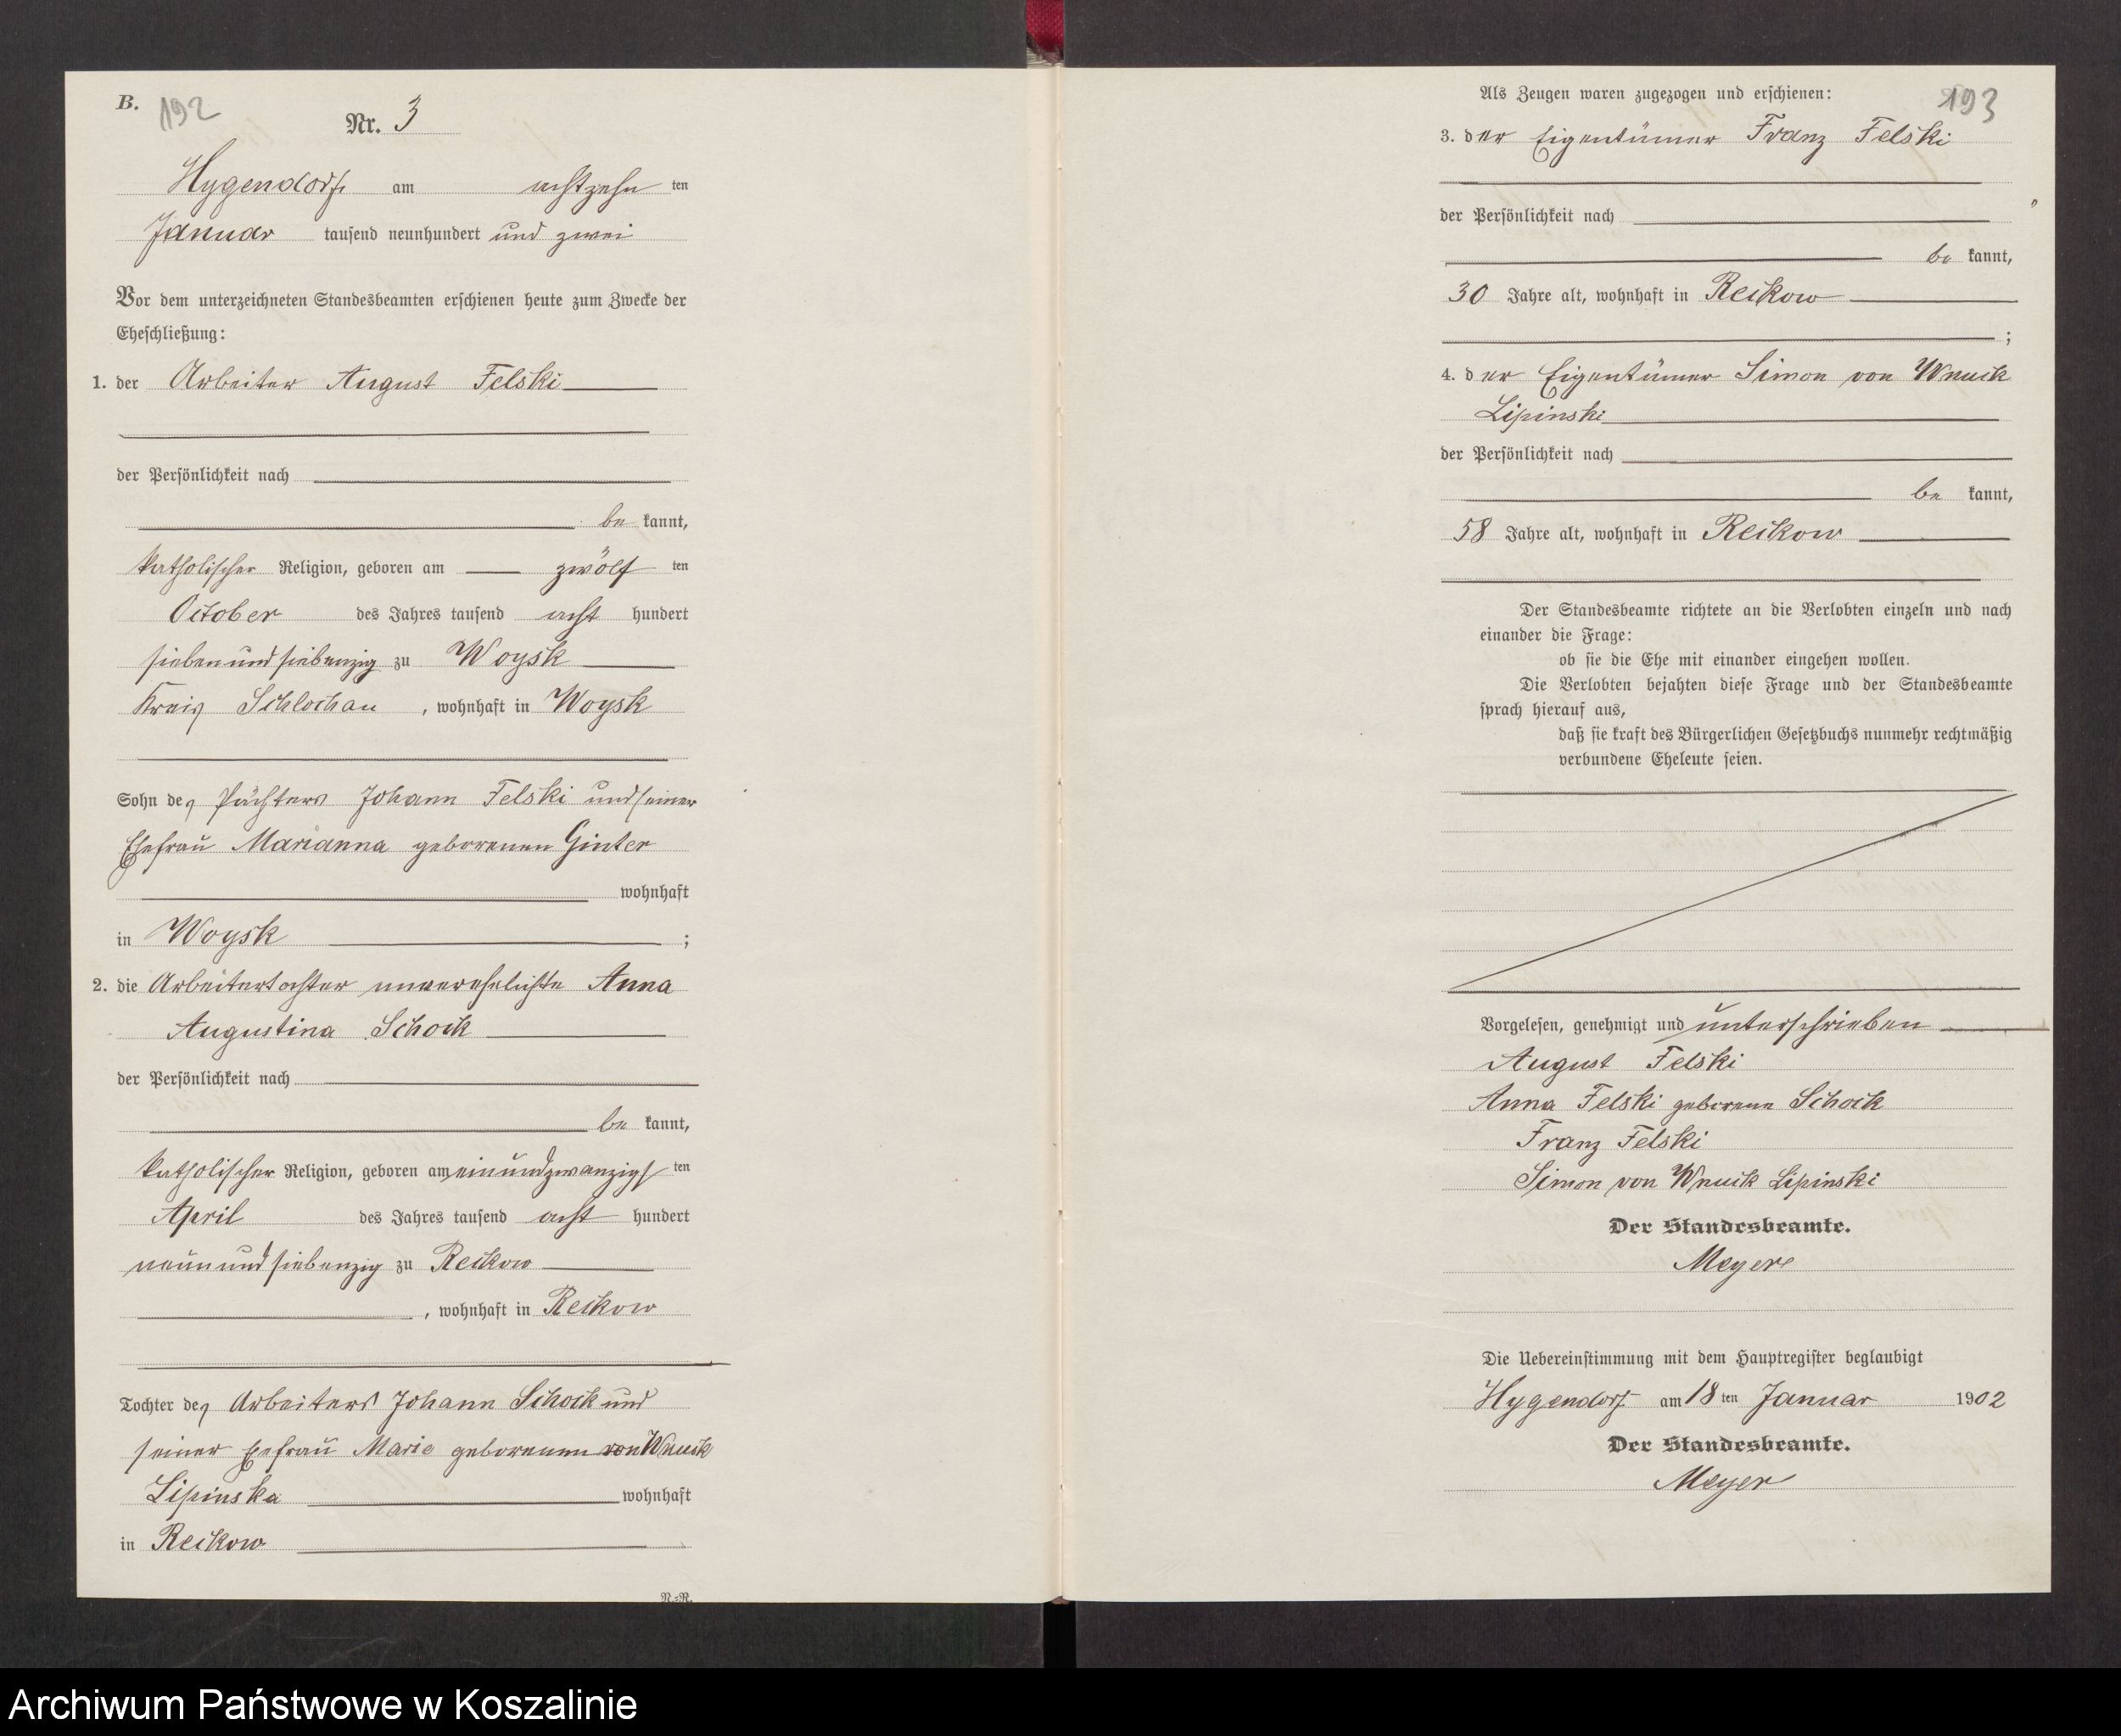 B.
192
Nr. 3
Hygendorf am achtzehn ten
Januar tausend neunhundert und zwei
Vor dem unterzeichneten Standesbeamten erschienen heute zum Zwecke der
Eheschließung:
1. der Arbeiter August Felski
der Persönlichkeit nach
be kannt,
katholischer Religion, geboren am zwölf ten
October des Jahres tausend acht hundert
sieben und siebenzig zu Woysk
Kreis Schlochau, wohnhaft in Woysk
Sohn des Pächters Johann Felski und seiner
Ehefrau Marianna geborenen Ginter
wohnhaft
in Woysk ;
2. die Arbeitertochter unverehelichte Anna
Augustina Schock
der Persönlichkeit nach
be kannt,
katholischer Religion, geboren am einundzwanzigs ten
April des Jahres tausend acht hundert
neun und siebenzig zu Reckow
, wohnhaft in Reckow
Tochter des Arbeiters Johann Schock und
seiner Ehefrau Marie geborenen von Wnuck
Lipinska wohnhaft
in Reckow
N.-N.
193
Als Zeugen waren zugezogen und erschienen:
3. der Eigentümer Franz Felski
der Persönlichkeit nach
be kannt,
30 Jahre alt, wohnhaft in Reckow
;
4. der Eigentümer Simon von Wnuck
Lipinski
der Persönlichkeit nach
be kannt,
58 Jahre alt, wohnhaft in Reckow
Der Standesbeamte richtete an die Verlobten einzeln und nach
einander die Frage:
ob sie die Ehe mit einander eingehen wollen.
Die Verlobten bejahten diese Frage und der Standesbeamte
sprach hierauf aus,
daß sie kraft des Bürgerlichen Gesetzbuchs nunmehr rechtmäßig
verbundene Eheleute seien.
Vorgelesen, genehmigt und unterschrieben
August Felski
Anna Felski geborene Schock
Franz Felski
Simon von Wnuck Lipinski
Der Standesbeamte.
Meyer
Die Uebereinstimmung mit dem Hauptregister beglaubigt
Hygendorf am 18 ten Januar 1902
Der Standesbeamte.
Meyer
Archiwum Państwowe w Koszalinie